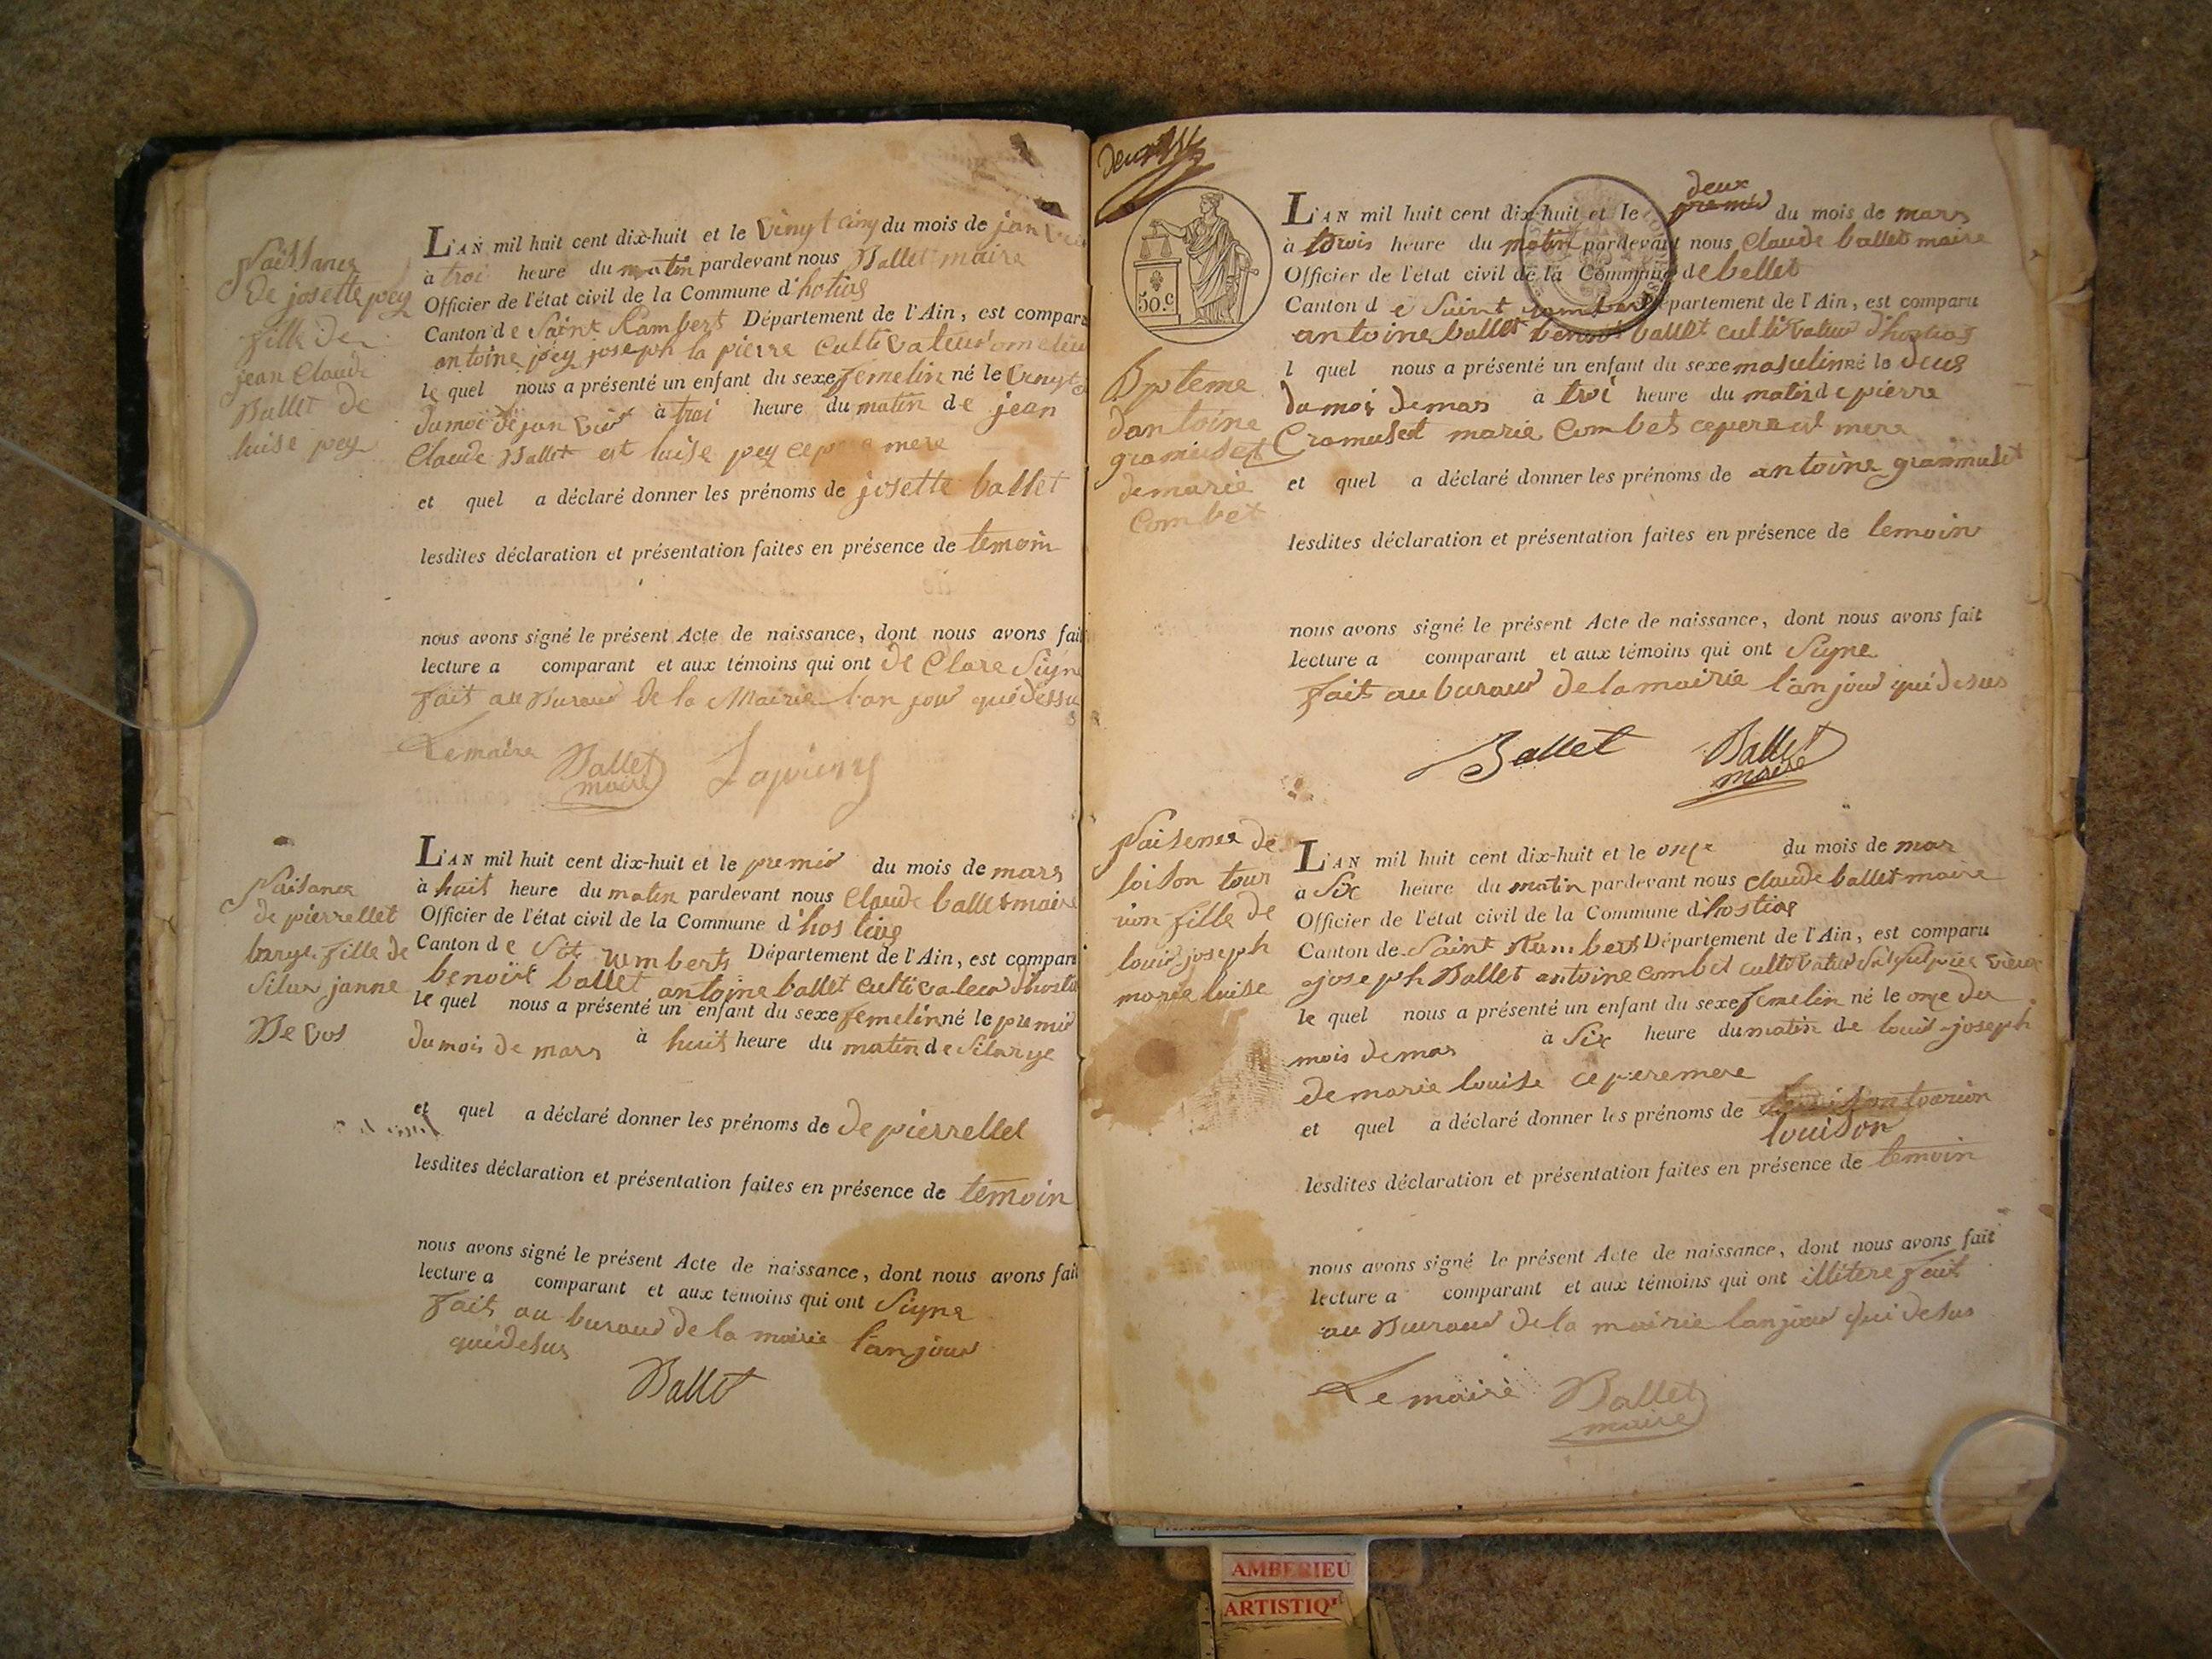 Naissance
de josette pey
fille de
jean Claude
Ballet de
luise pey
L'AN mil huit cent dix-huit et le vingt cinq du mois de janvie
à troi heure du matin pardevant nous Ballet maire
Officier de l'état civil de la Commune d'hotias
Canton de Saint Rambert Département de l'Ain, est comparu
antoine pey joseph la pierre cultivateur
le quel nous a présenté un enfant du sexe femelin né le vingt
du moi de janvier à troi heure du matin de jean
Claude Ballet est luise pey ce pere mere
et quel a déclaré donner les prénoms de josette ballet
lesdites déclaration et présentation faites en présence de temoin
nous avons signé le présent Acte de naissance, dont nous avons fait
lecture a comparant et aux témoins qui ont de Clare Signe
fait au Buraud de la Mairie l'an jour qu'e dessu
Le maire Ballet
maire
Naisance
de pierrellet
barge fille de
Silar janne
De vos
L'AN mil huit cent dix-huit et le premier du mois de mars
à huit heure du matin pardevant nous Claude ballet maire
Officier de l'état civil de la Commune d'hostias
Canton de St rumberts Département de l'Ain, est comparu
benoit ballet antoine ballet cultivateur d'hostia
le quel nous a présenté un enfant du sexe femelin né le premier
du mois de mars à huit heure du matin de Silarge
et quel a déclaré donner les prénoms de de pierrellet
lesdites déclaration et présentation faites en présence de temoin
nous avons signé le présent Acte de naissance, dont nous avons fait
lecture a comparant et aux témoins qui ont Signe
fait au buraud de la mairie l'an jour
qui desus
Ballet
50.c
deux
premier
L'AN mil huit cent dix-huit et le du mois de mars
à trois heure du matin pardevant nous Claude ballet maire
Officier de l'état civil de la Commune de bellet
Canton de Saint rambert Département de l'Ain, est comparu
antoine ballet benoit ballet cultivateur d'hostias
l quel nous a présenté un enfant du sexe masculin né le deus
du moi de mars à troi heure du matin de pierre
Cramuset marie Combet ce pere est mere
et quel a déclaré donner les prénoms de antoine grammuset
lesdites déclaration et présentation faites en présence de temoin
nous avons signé le présent Acte de naissance, dont nous avons fait
lecture a comparant et aux témoins qui ont Signe
fait au buraud de la mairie l'an jour qui desus
Ballet Ballet
maire
Bpteme
dantoine
gramuset
de marie
Combet
Naisence de
loison tour
nion fille de
louis joseph
marie luise
L'AN mil huit cent dix-huit et le onze du mois de mar
à Six heure du matin pardevant nous Claude ballet maire
Officier de l'état civil de la Commune d'hostias
Canton de Saint Rambert Département de l'Ain, est comparu
joseph Ballet antoine combet cultivateur
le quel nous a présenté un enfant du sexe femelin né le onze du
mois de mar à Six heure du matin de louis joseph
de marie louise ce pere mere
et quel a déclaré donner les prénoms de
louison
lesdites déclaration et présentation faites en présence de temoin
nous avons signé le présent Acte de naissance, dont nous avons fait
lecture a comparant et aux témoins qui ont illitere fait
au Buraud de la mairie lan jour qui desus
Le maire Ballet
maire
AMBERIEU
ARTISTIQ